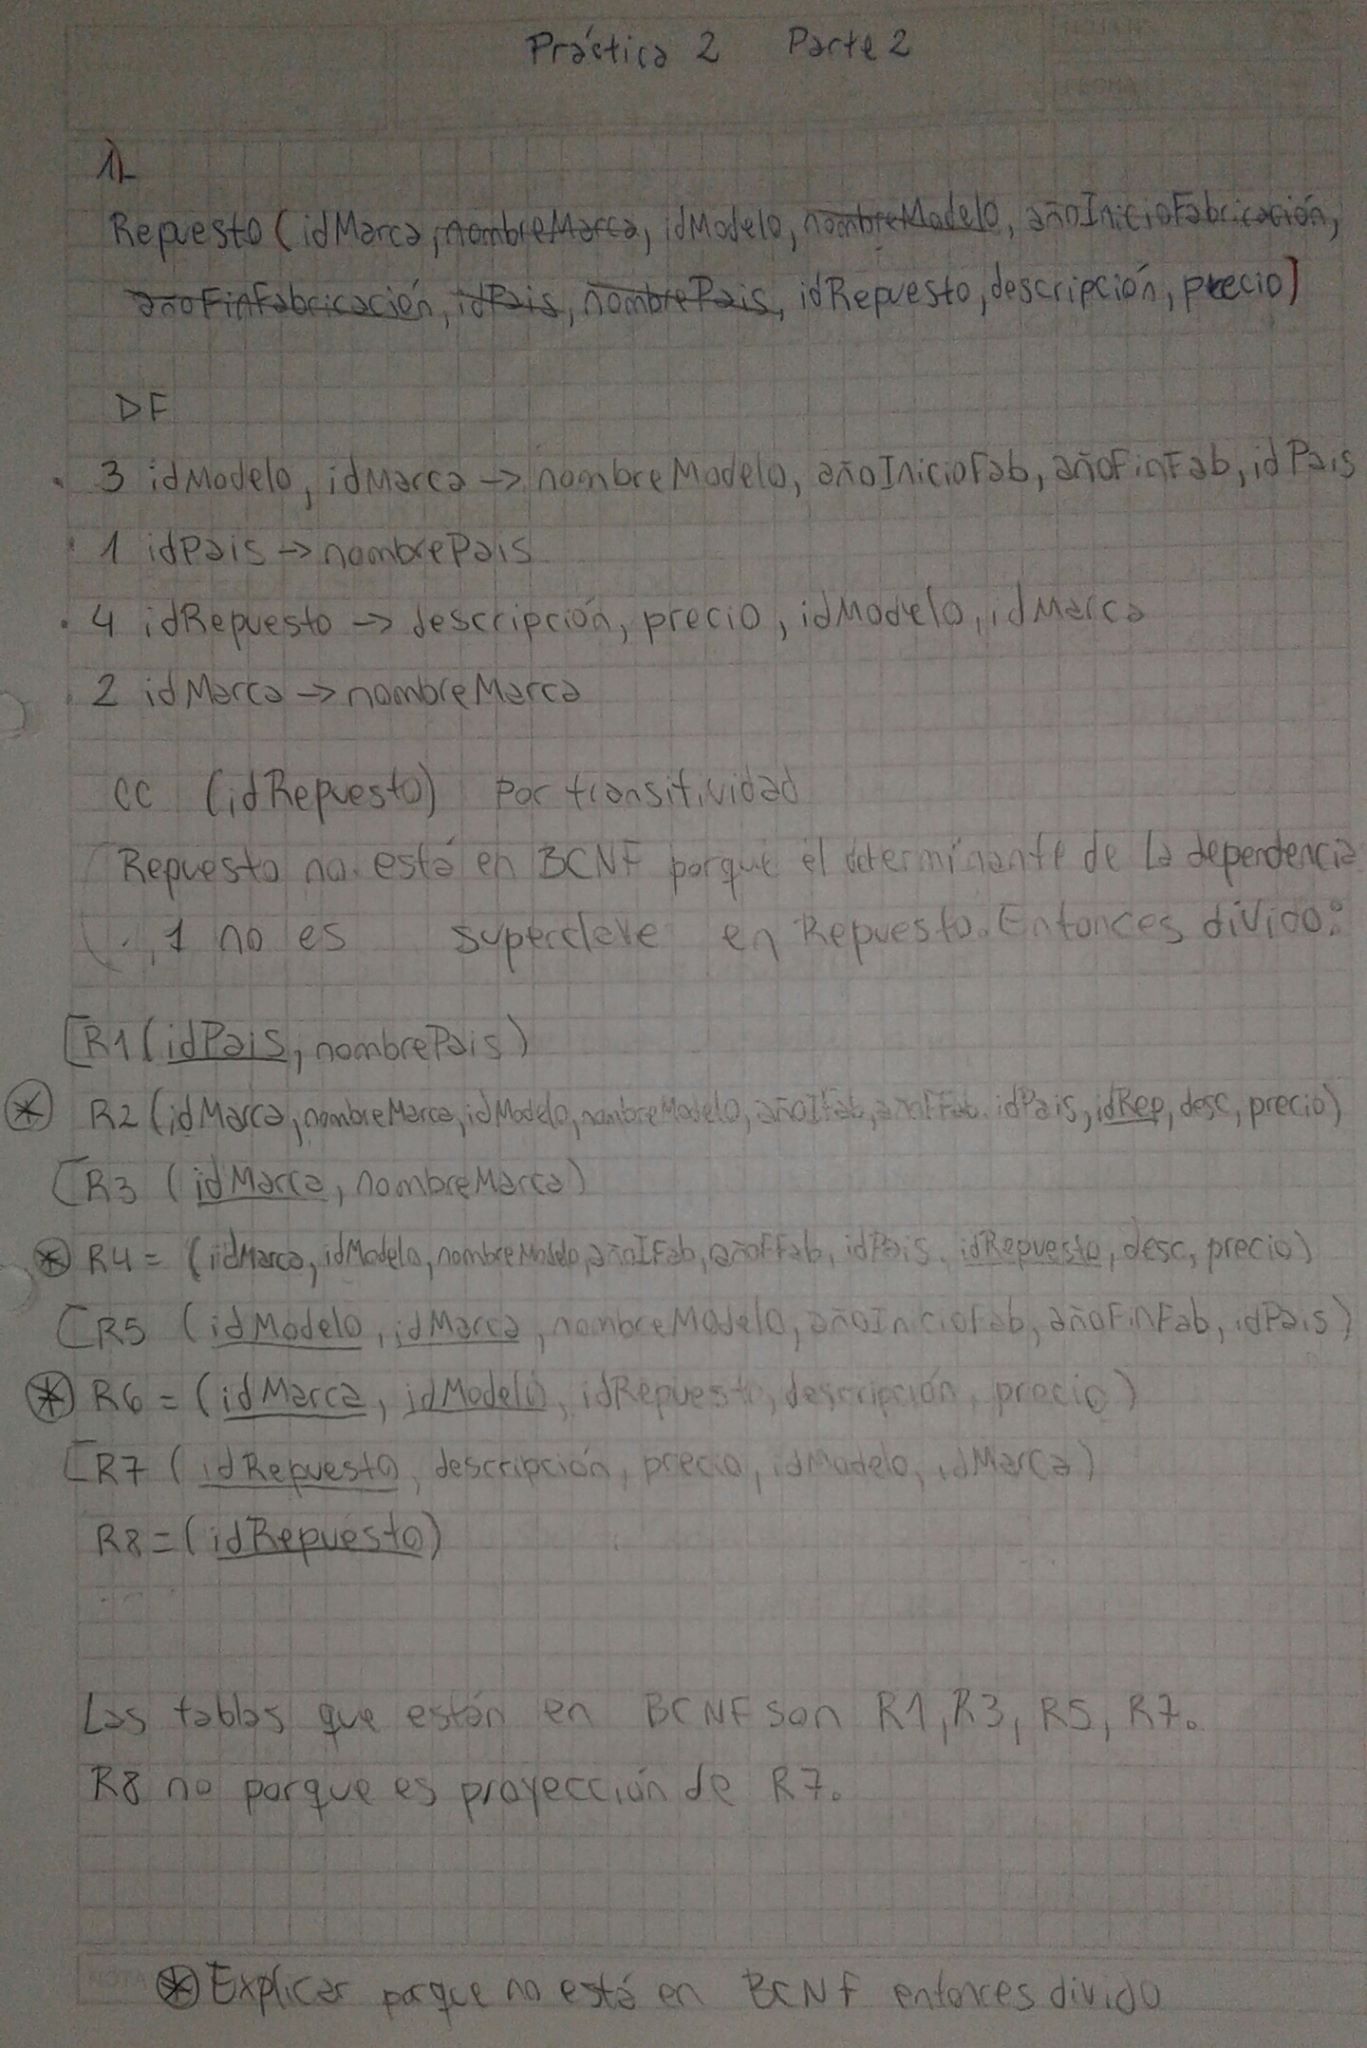 Práctica 2 Parte 2
1)
Repuesto (idMarca, nombreMarca, idModelo, nombreModelo, añoInicioFabricación,
añoFinFabricación, idPais, nombrePais, idRepuesto, descripción, precio)
DF
3 idModelo, idMarca → nombreModelo, añoInicioFab, añoFinFab, idPais
1 idPais → nombrePais
4 idRepuesto → descripción, precio, idModelo, idMarca
2 idMarca → nombreMarca
CC (idRepuesto) Por transitividad
Repuesto no está en BCNF porque el determinante de la dependencia
1 no es superclave en Repuesto. Entonces divido:
R1 (idPais, nombrePais)
R2 (idMarca, nombreMarca, idModelo, nombreModelo, añoIFab, añoFFab, idPais, idRep, desc, precio)
R3 (idMarca, nombreMarca)
R4 = (idMarca, idModelo, nombreModelo, añoIFab, añoFFab, idPais, idRepuesto, desc, precio)
R5 (idModelo, idMarca, nombreModelo, añoInicioFab, añoFinFab, idPais)
R6 = (idMarca, idModelo, idRepuesto, descripción, precio)
R7 (idRepuesto, descripción, precio, idModelo, idMarca)
R8 = (idRepuesto)
Las tablas que están en BCNF son R1, R3, R5, R7.
R8 no porque es proyección de R7.
NOTA
* Explicar porque no está en BCNF entonces divido